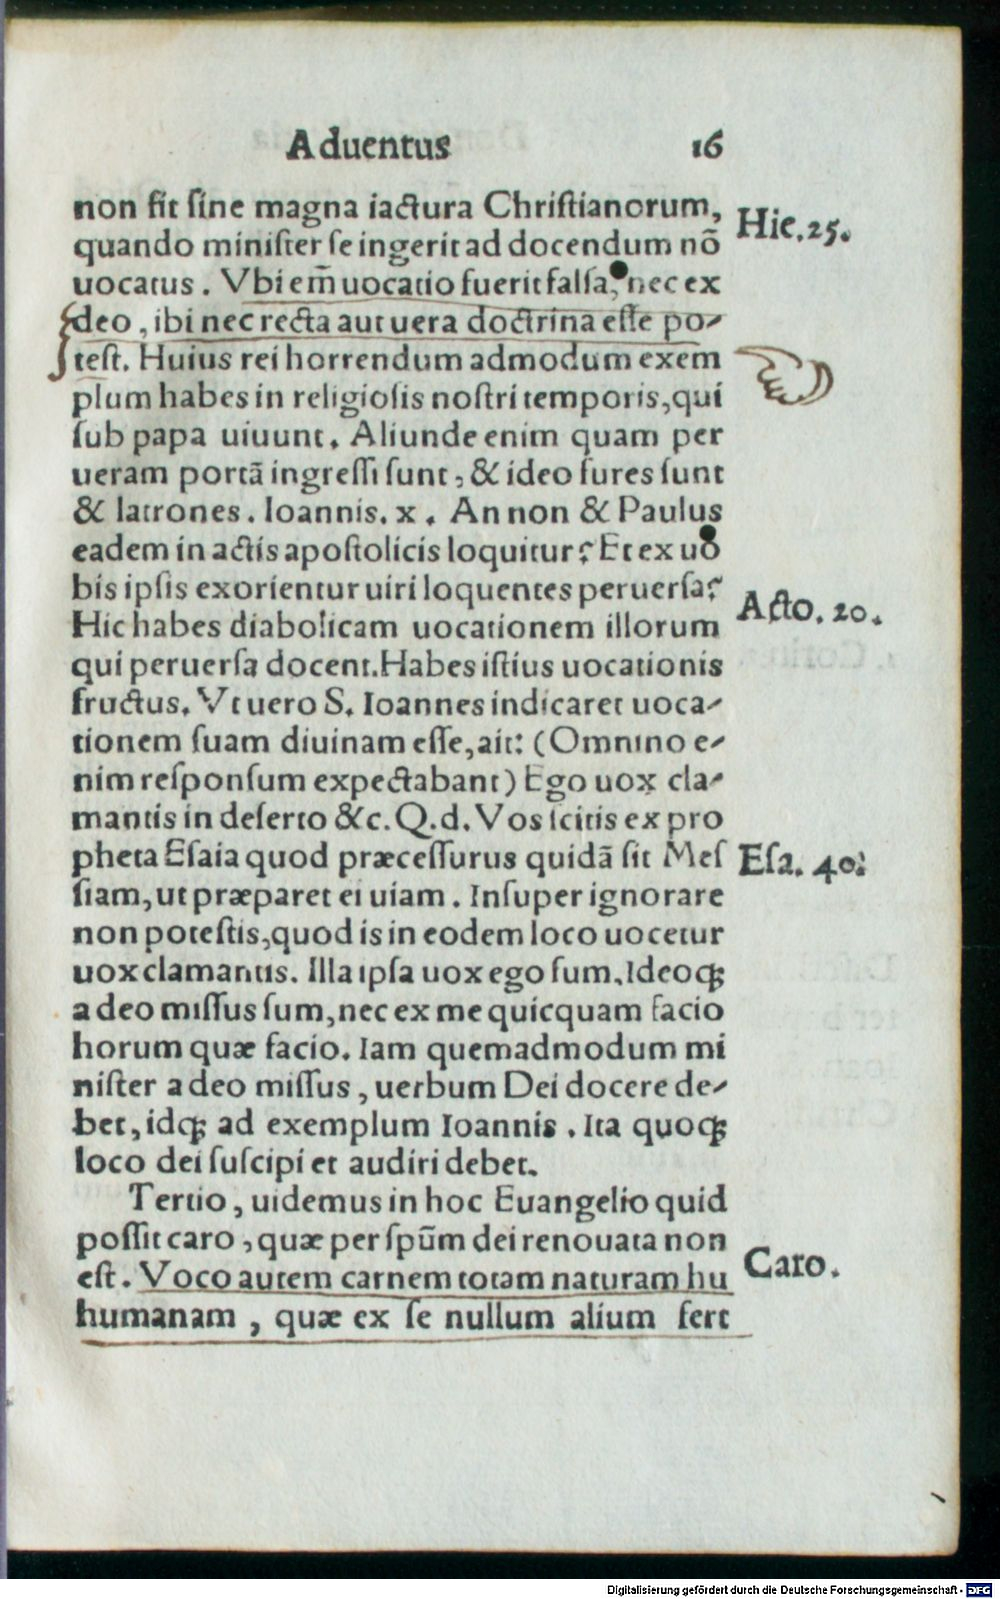 Aduentus 16
non fit ſine magna iactura Chriſtianorum,
Hie. 25.
quando miniſter ſe ingerit ad docendum nō
uocatus. Vbi em̄ uocatio fuerit falſa, nec ex
deo, ibi nec recta aut uera doctrina eſſe po-
teſt. Huius rei horrendum admodum exem
plum habes in religioſis noſtri temporis, qui
ſub papa uiuunt. Aliunde enim quam per
ueram portā ingreſſi ſunt, & ideo fures ſunt
& latrones. Ioannis. x. An non & Paulus
eadem in actis apoſtolicis loquitur? Et ex uo
bis ipſis exorientur uiri loquentes peruerſa?
Acto. 20.
Hic habes diabolicam uocationem illorum
qui peruerſa docent. Habes iſtius uocationis
fructus. Vt uero S. Ioannes indicaret uoca-
tionem ſuam diuinam eſſe, ait: (Omnino e-
nim reſponſum expectabant) Ego uox cla-
mantis in deſerto &c. Q. d. Vos ſcitis ex pro
pheta Eſaia quod præceſſurus quidā ſit Meſ
Eſa. 40.
ſiam, ut præparet ei uiam. Inſuper ignorare
non poteſtis, quod is in eodem loco uocetur
uox clamantis. Illa ipſa uox ego ſum. Ideoqꝫ
a deo miſſus ſum, nec ex me quicquam facio
horum quæ facio. Iam quemadmodum mi
niſter a deo miſſus, uerbum Dei docere de-
bet, idqꝫ ad exemplum Ioannis. Ita quoqꝫ
loco dei ſuſcipi et audiri debet.
Tertio, uidemus in hoc Euangelio quid
poſſit caro, quæ per ſpūm dei renouata non
Caro.
eſt. Voco autem carnem totam naturam hu
humanam, quæ ex ſe nullum alium fert
Digitalisierung gefördert durch die Deutsche Forschungsgemeinschaft - DFG